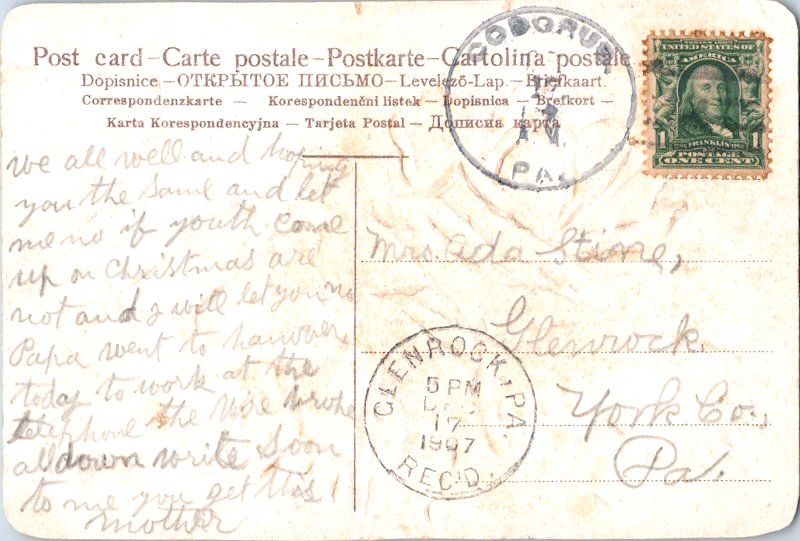 Post card – Carte postale – Postkarte – Cartolina postale
Dopisnice – ОТКРЫТОЕ ПИСЬМО – Levelező-Lap. – Briefkaart.
Correspondenzkarte — Korespondenční lístek — Dopisnica — Brefkort —
Karta Korespondencyjna — Tarjeta Postal — Дописна карта
CODORUS
17
PA.
SERIES 1902
UNITED STATES OF
AMERICA
1 FRANKLIN 1
POSTAGE
ONE CENT
we all well and hoping
you the same and let
me no if youth come
up on Christmas are
not and I will let you no
Papa went to hanover
today to work at the
telephone the wire broke
all down write soon
to me you get this
mother
Mrs. Ada Stine,
Glenrock
York Co.,
Pa.
GLENROCK, PA.
5 PM
DEC
17
1907
REC'D.